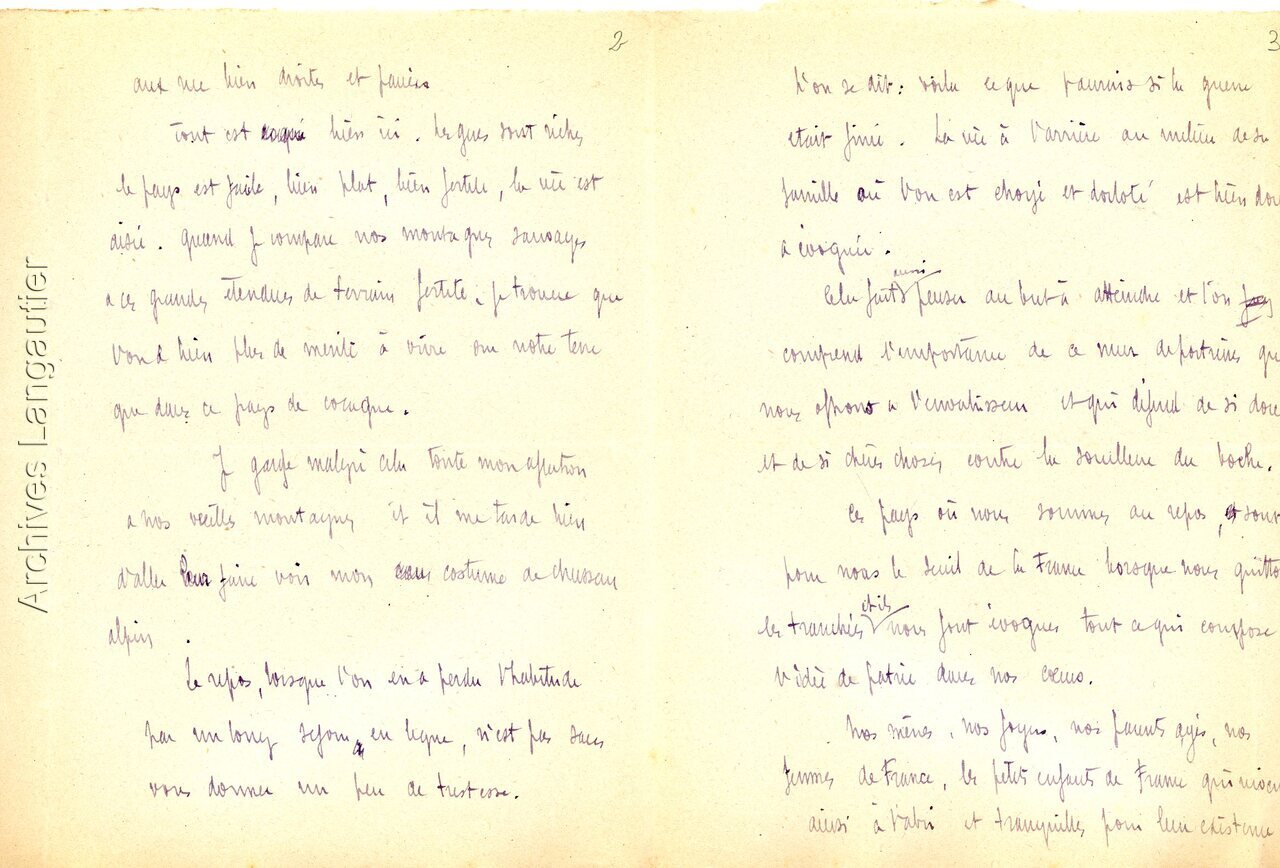 2
aux rue bien droites et pavées
tout est coquet bien ici. Les gens sont riches
le pays est facile, bien plat, bien fertile, la vie est
aisée. Quand je compare nos montagnes sauvages
a ces grandes étendues de terrain fertile, je trouve que
l'on a bien plus de mérite à vivre sur notre terre
que dans ce pays de cocagne.
Je garde malgré cela toute mon affection
a nos vieilles montagnes et il me tarde bien
d'aller pour faire voir mon costume de chasseur
alpin.
Le repos, lorsque l'on en a perdu l'habitude
par un long séjour en ligne, n'est pas sans
vous donner un peu de tristesse.
3
L'on se dit: voilà ce que j'aurais si la guerre
etait finie. La vie à l'arrière au milieu de sa
famille où l'on est choyé et dorloté est bien
a évoquée.
Cela fait aussi penser au but à atteindre et l'on
comprend l'importance de ce mur de poitrines que
nous offrons a l'envahisseur et qui défend de si
et de si chères choses contre la souillure du boche.
Ces pays où nous sommes au repos, sont
pour nous le seuil de la France lorsque nous
les tranchées et ils nous font évoquer tout ce qui compose
l'idée de patrie dans nos coeurs.
Nos mères, nos foyers, nos parents agés, nos
femmes de France, les petits enfants de France qui
ainsi à l'abri et tranquilles pour leur existence
Archives Langautier